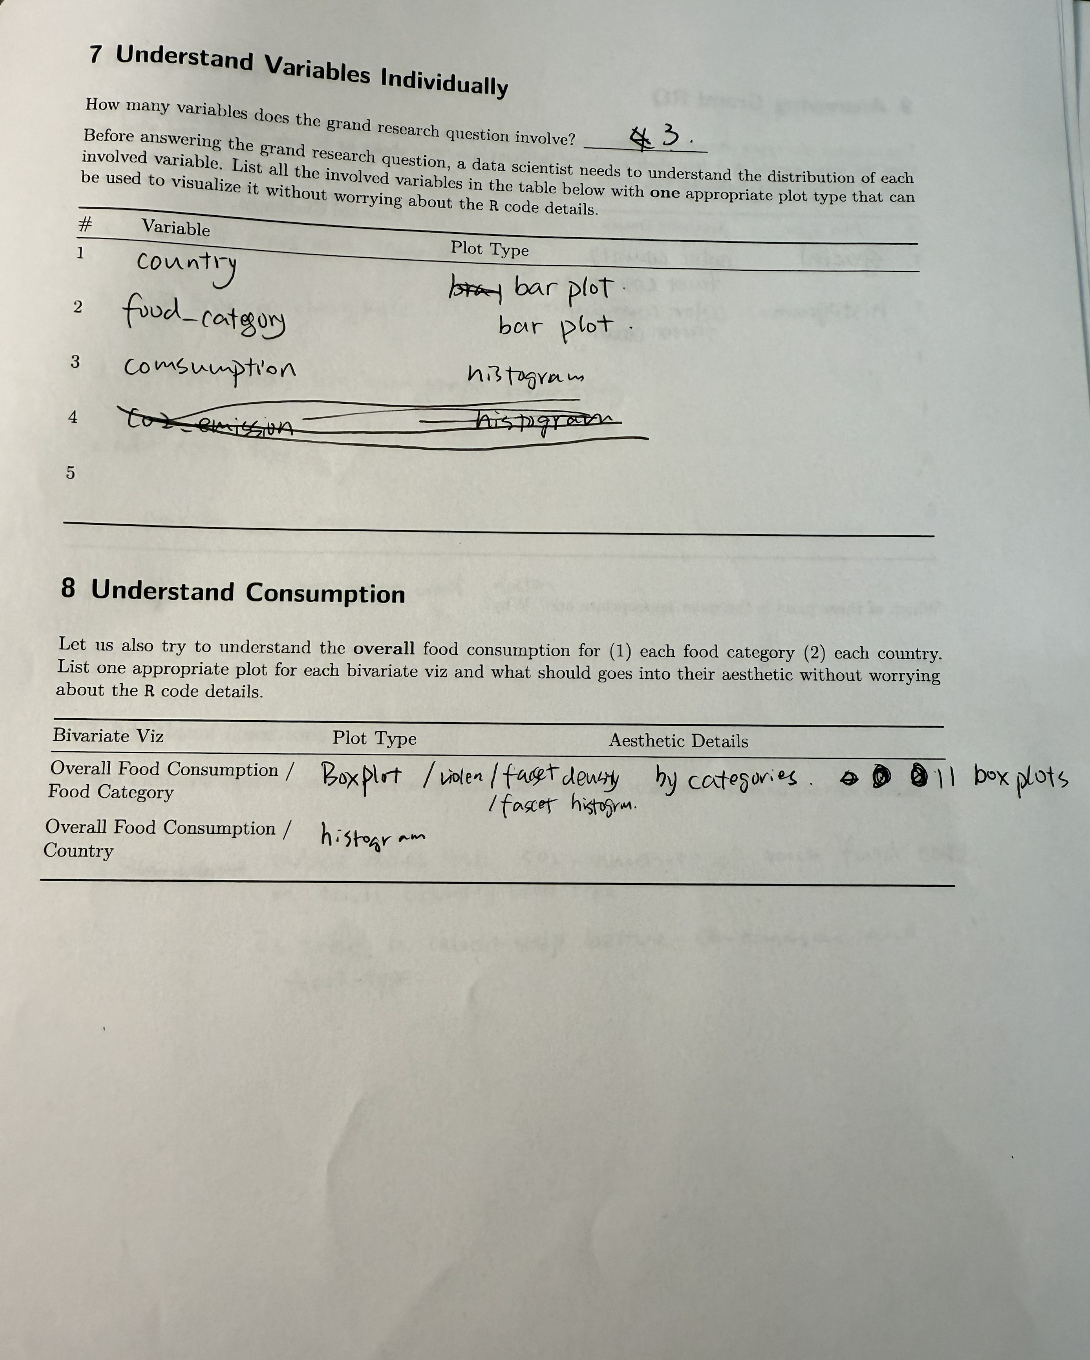 7 Understand Variables Individually
How many variables does the grand research question involve? 3.
Before answering the grand research question, a data scientist needs to understand the distribution of each
involved variable. List all the involved variables in the table below with one appropriate plot type that can
be used to visualize it without worrying about the R code details.
# Variable Plot Type
1 country bar plot.
2 food_category bar plot.
3 comsumption histogram
4 co2_emission histogram
5
8 Understand Consumption
Let us also try to understand the overall food consumption for (1) each food category (2) each country.
List one appropriate plot for each bivariate viz and what should goes into their aesthetic without worrying
about the R code details.
Bivariate Viz Plot Type Aesthetic Details
Overall Food Consumption / Boxplot / violen / facet density by categories. 11 box plots
Food Category / fascet histogrm.
Overall Food Consumption / histogram
Country